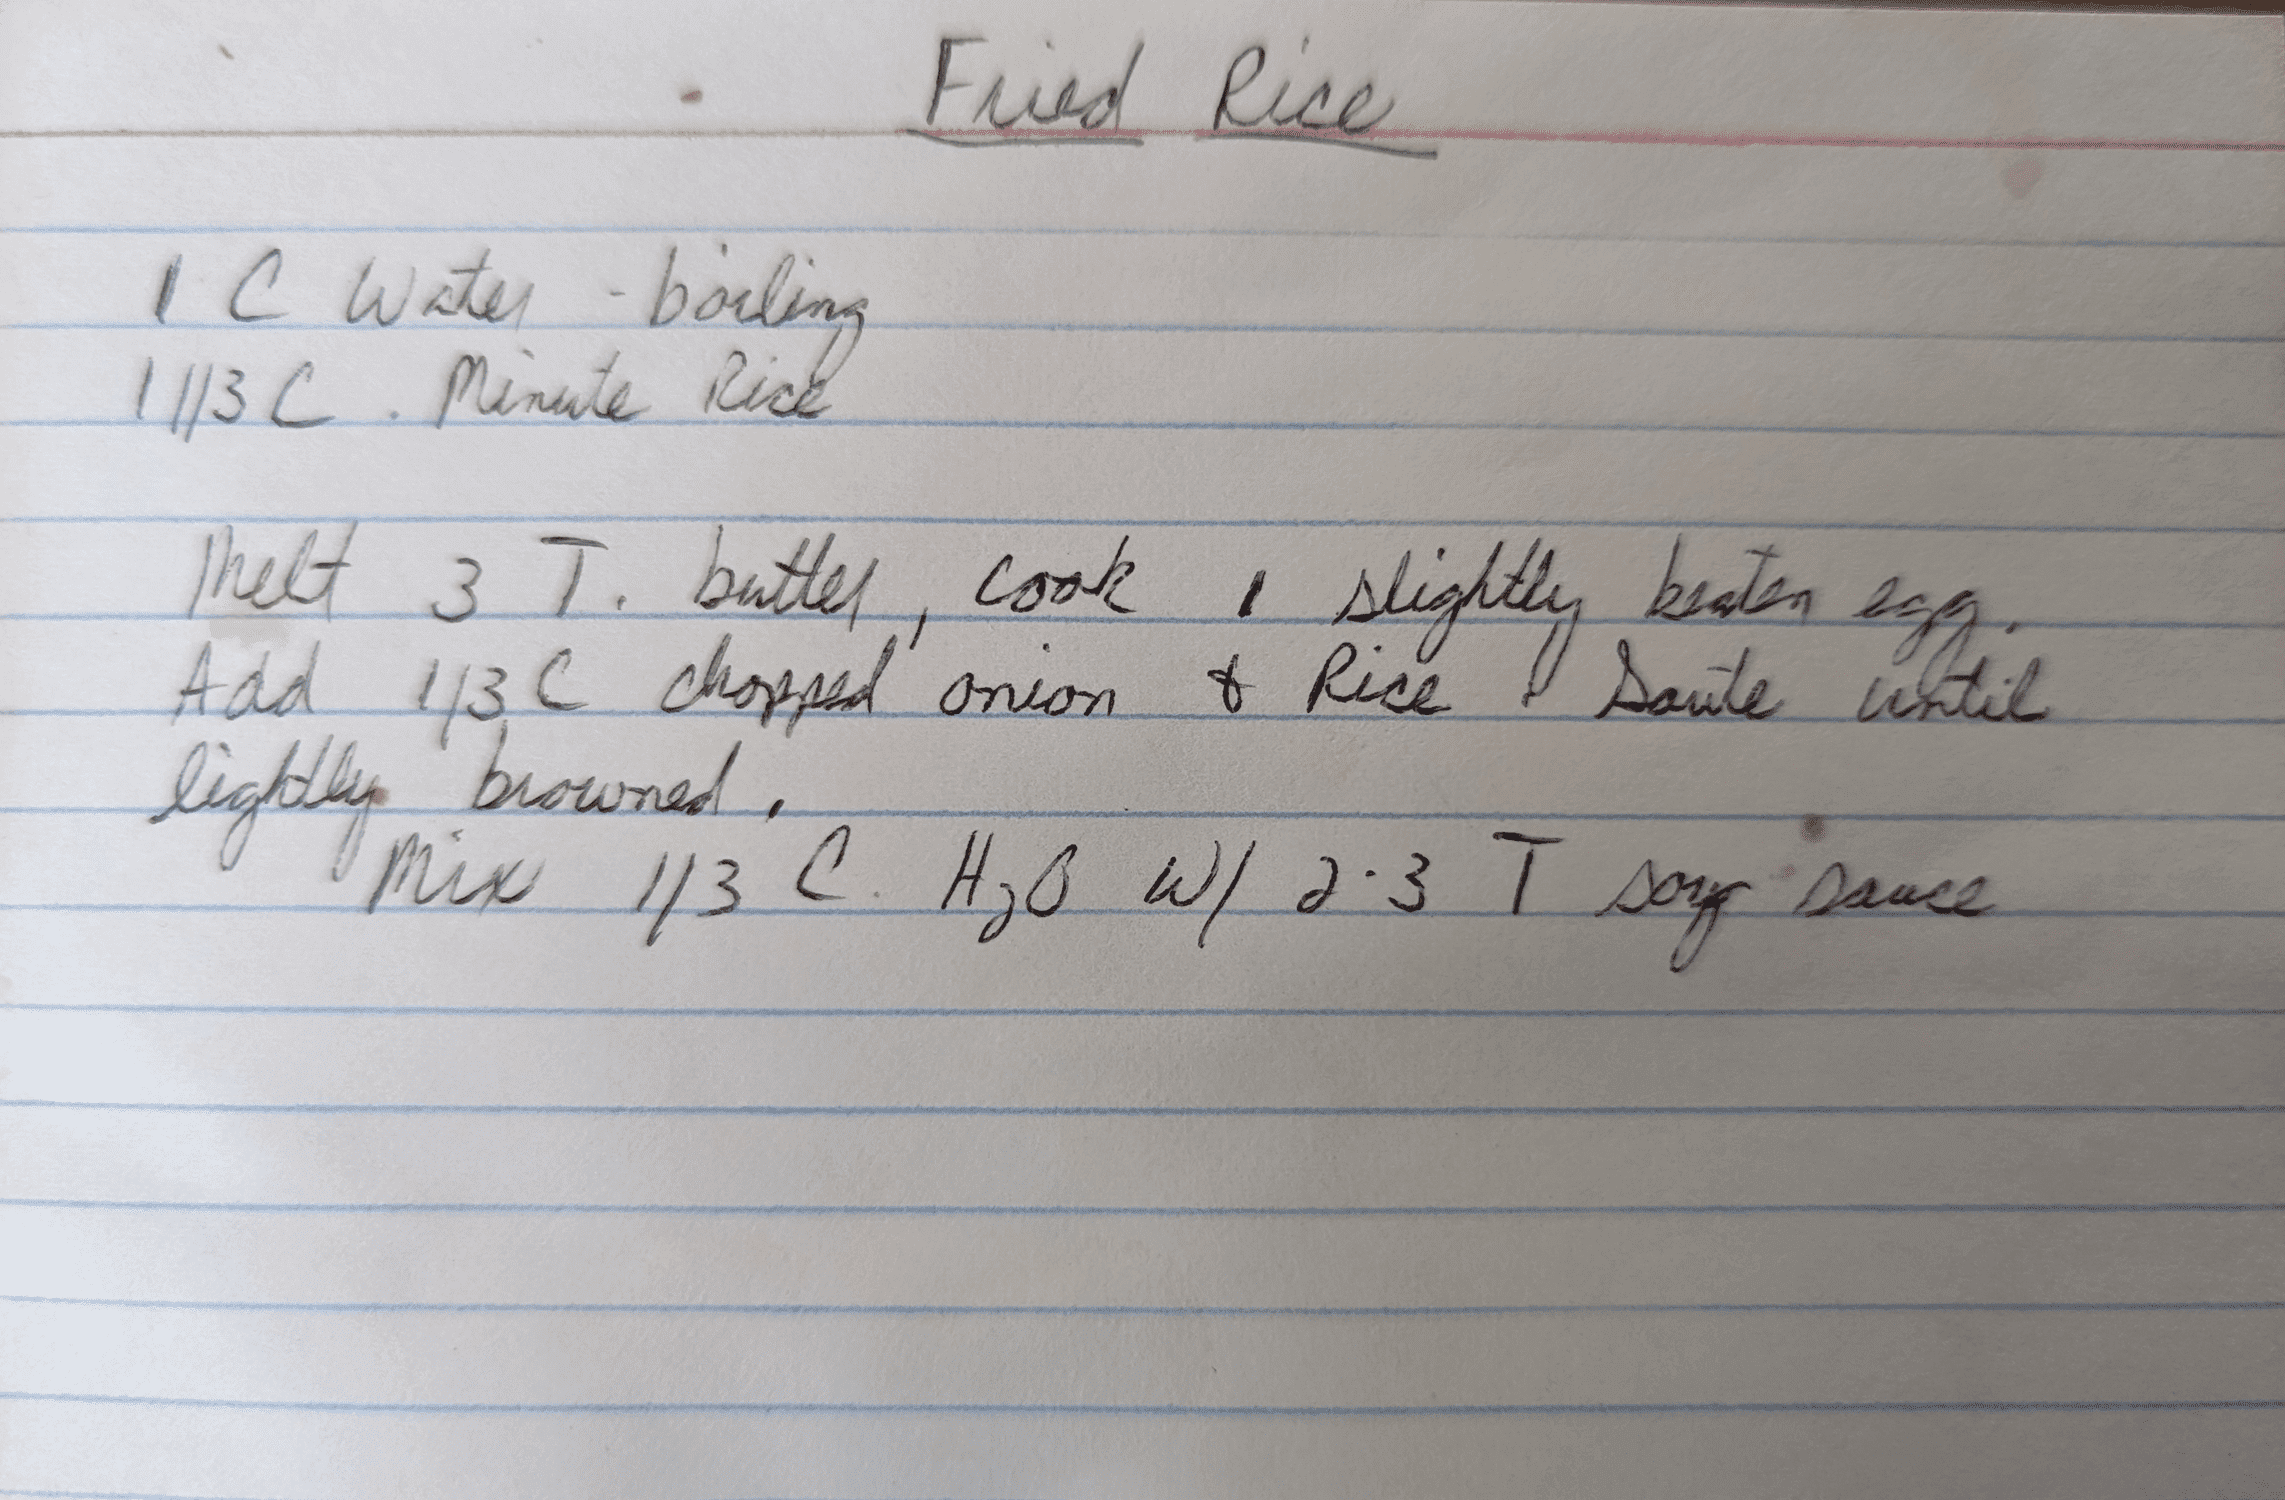 Fried Rice
1 C Water - boiling
1 1/3 C. Minute Rice
Melt 3 T. butter, cook 1 slightly beaten egg.
Add 1/3 C chopped onion & Rice. Saute until
lightly browned.
Mix 1/3 C. H2O w/ 2-3 T soy sauce